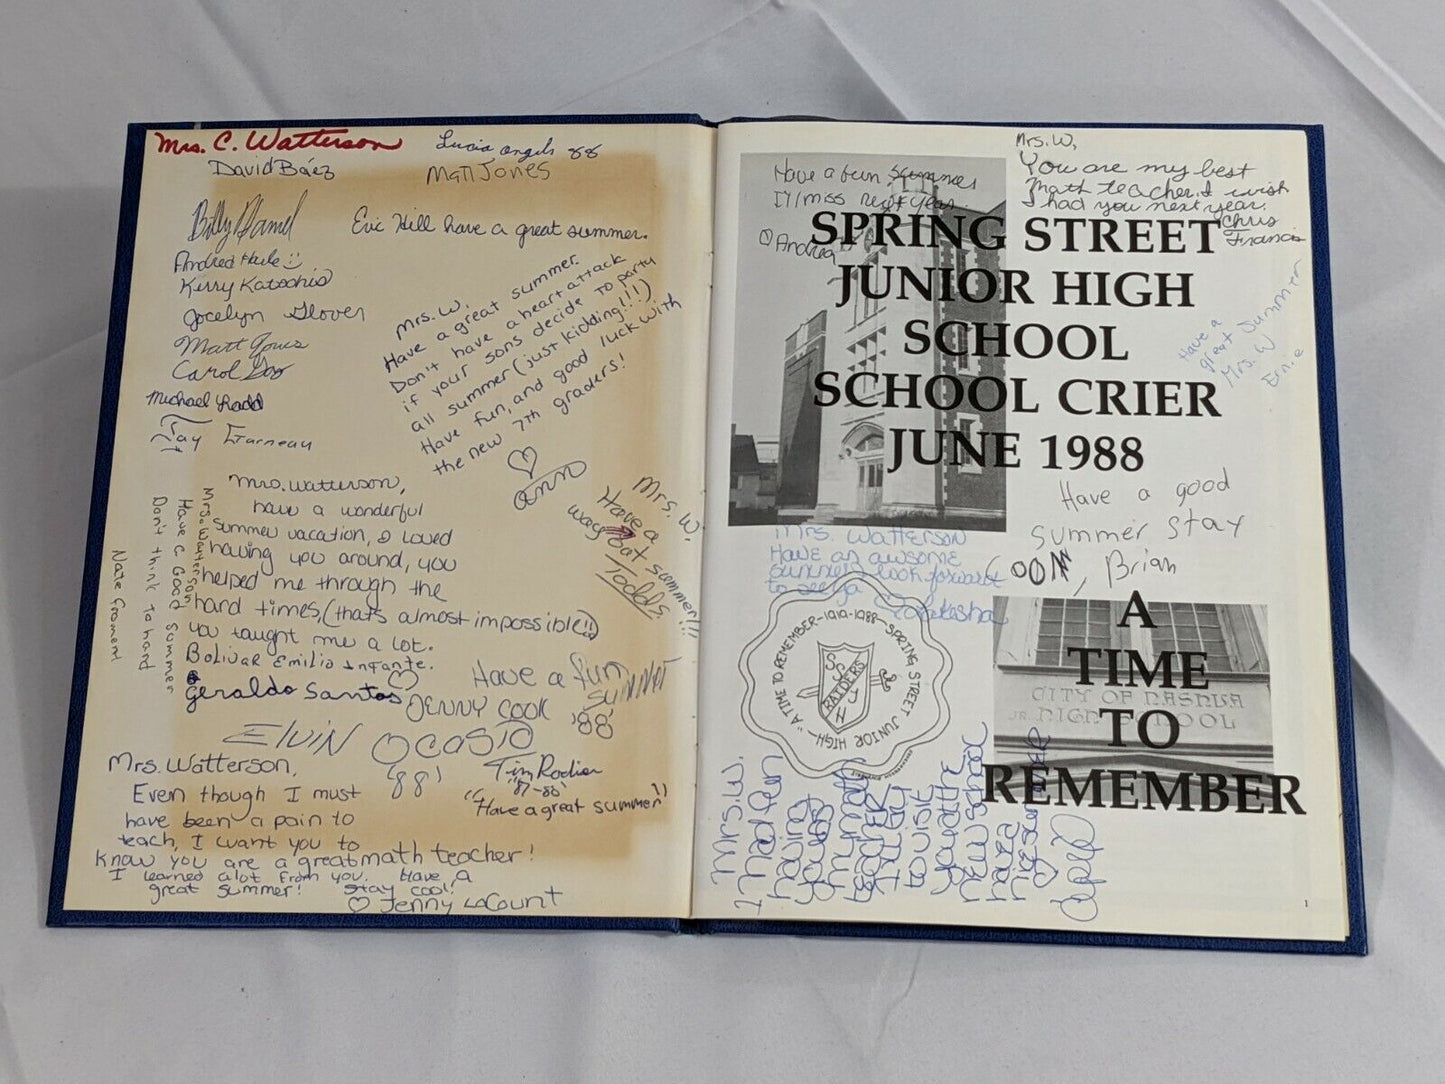 Mrs. C. Watterson
David Báez
Lucia angels 88
Matt Jones
Billy Hamel
Eric Hill have a great summer.
Kerry
Jocelyn Glover
Matt Jones
Carol
Michael Ladd
Jay Garneau
Mrs. W.
Have a great summer.
Don't have a heart attack
if your sons decide to party
all summer (just kidding!!!)
Have fun, and good luck with
the new 7th graders!
♡
ann
Mrs. W.
Have a
way out summer!!!
Todd
Mrs. Watterson,
have a wonderful
summer vacation, I loved
having you around, you
helped me through the
hard times, (that's almost impossible!!)
you taught me a lot.
Bolivar Emilio Infante.
Geraldo Santos
Mrs. Watterson
Have a Good Summer
Don't think to hard
Nate Froment
Have a fun
summer
'88'
♡
Jenny Cook
Elvin Ocasio
'88'
Tim Rodier
"87-88"
"Have a great summer"
Mrs. Watterson,
Even though I must
have been a pain to
teach, I want you to
know you are a great math teacher!
I learned alot from you. Have a
great summer! Stay cool!
♡ Jenny LaCount
Have a fun summer
I'll miss next year.
Andrea
Mrs. W,
You are my best
math teacher. I wish
I had you next year.
Chris
Francis
SPRING STREET
JUNIOR HIGH
SCHOOL
SCHOOL CRIER
JUNE 1988
Have a
great Summer
Mrs. W
Ernie
Have a good
summer stay
COOL, Brian
Mrs. Watterson
Have an awsome
summer look forward
to see ya
"A TIME TO REMEMBER-1919-1988-SPRING STREET JUNIOR HIGH-
SSJH
RAIDERS
CITY OF NASHUA
JR. HIGH SCHOOL
A
TIME
TO
REMEMBER
Mrs. W.
I had fun
having
April
1